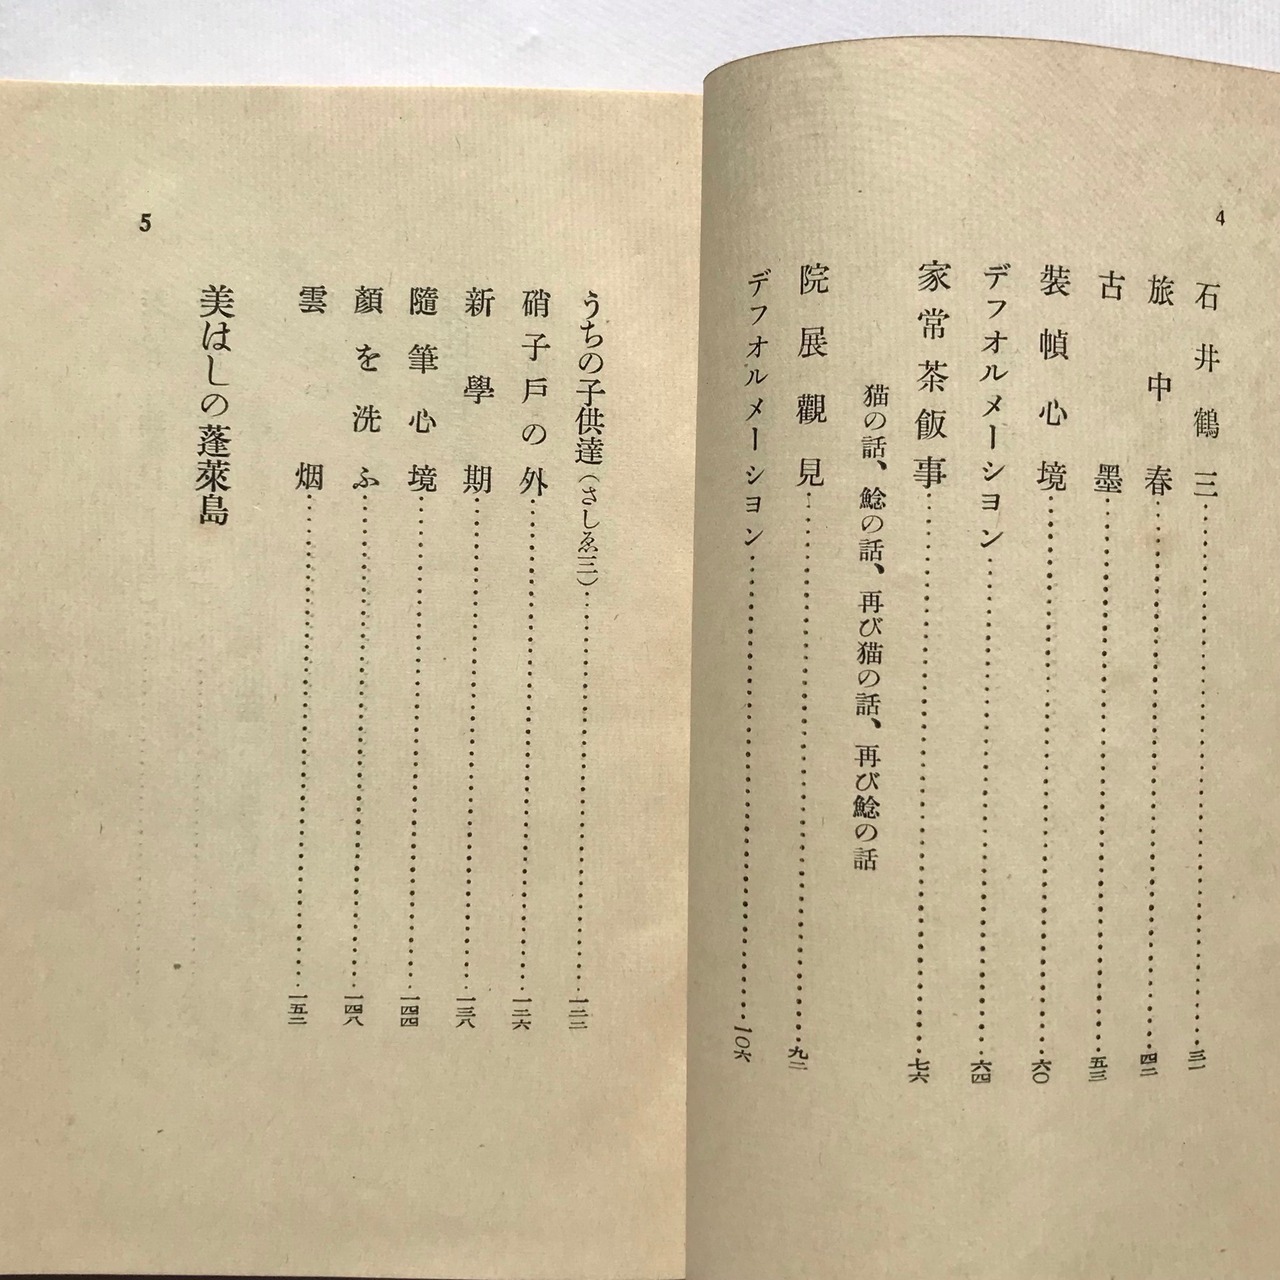 4
石井鶴三……三一
旅中春……四二
古墨……五三
裝幀心境……六〇
デフオルメーシヨン……六四
家常茶飯事……七六
猫の話、鯰の話、再び猫の話、再び鯰の話
院展觀見……九二
デフオルメーシヨン……10六
5
うちの子供達(さしゑ三)……一三二
硝子戸の外……一三六
新學期……一三八
隨筆心境……一四四
顏を洗ふ……一四八
雲烟……一五二
美はしの蓬萊島